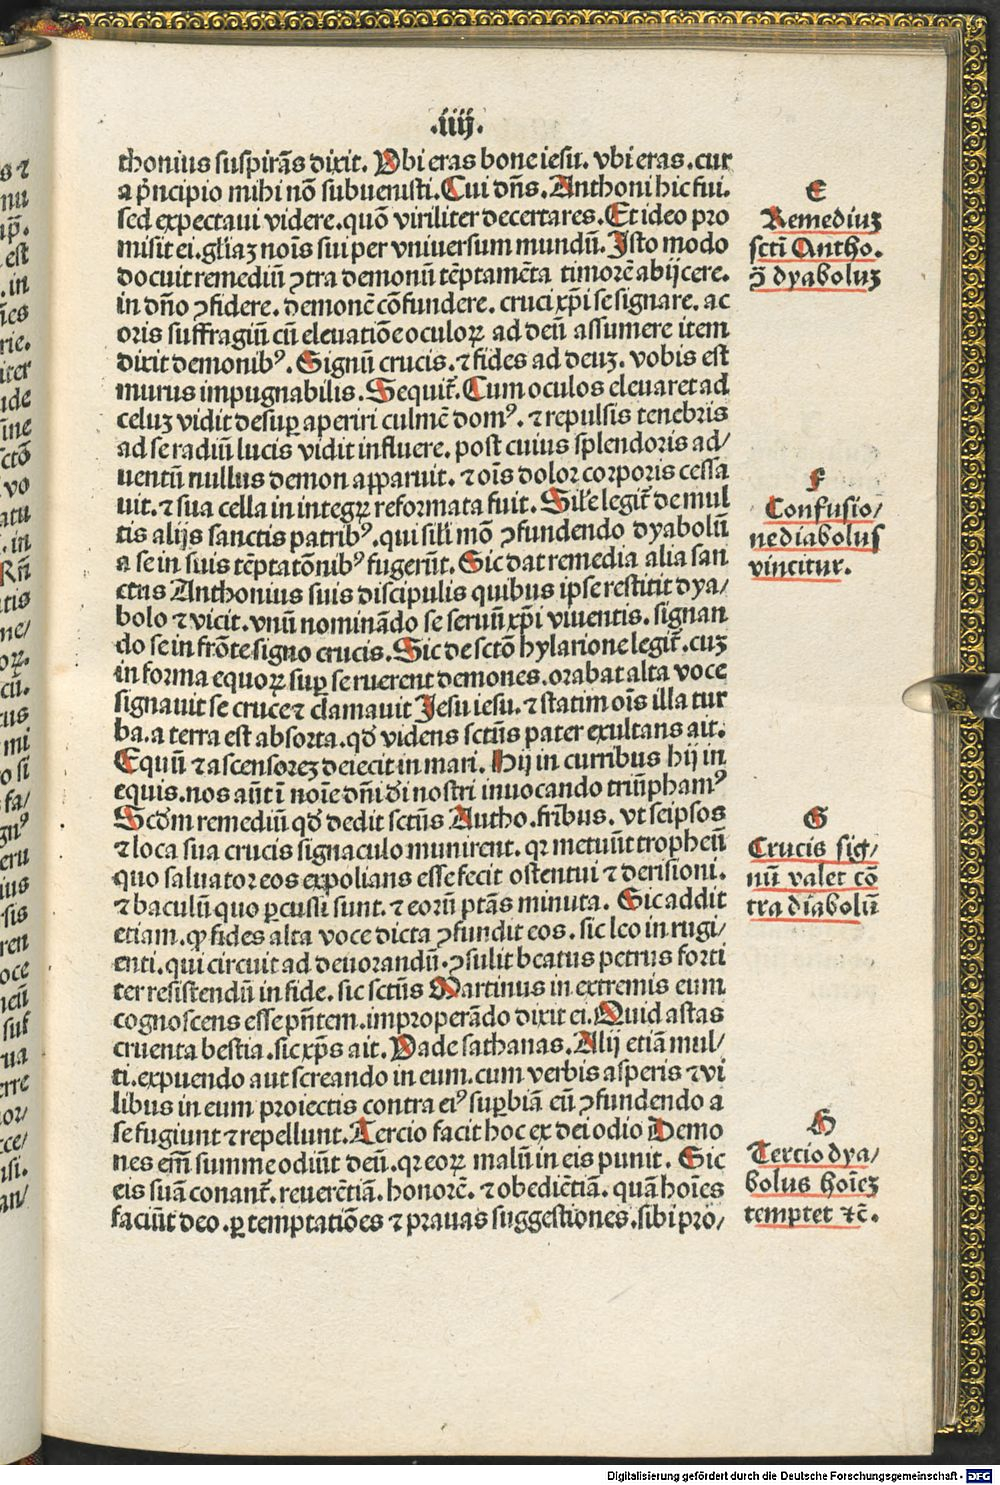 .iiij.
thonius suspirãs dixit. Vbi eras bone iesu. vbi eras. cur
a p̃ncipio mihi nõ subuenisti. Cui dñs. Anthoni hic fui.
sed expectaui videre. quõ viriliter decertares. Et ideo pro
misit ei. gl̃iaʒ noĩs sui per vniuersum mundũ. Isto modo
docuit remediũ ꝯtra demonũ tẽptamẽta timorẽ abijcere.
in dño ꝯfidere. demonẽ cõfundere. cruci xp̃i se signare. ac
oris suffragiũ cũ eleuatiõe oculoꝝ ad deũ assumere item
dixit demonibꝰ. Signũ crucis. ⁊ fides ad deuʒ. vobis est
murus impugnabilis. Sequit̃. Cum oculos eleuaret ad
celuʒ vidit desuꝑ aperiri culmẽ domꝰ. ⁊ repulsis tenebris
ad se radiũ lucis vidit influere. post cuius splendoris ad/
uentũ nullus demon apparuit. ⁊ oĩs dolor corporis cessa
uit. ⁊ sua cella in integꝝ reformata fuit. Sil̃e legit̃ de mul
tis alijs sanctis patribꝰ. qui sil̃i mõ ꝯfundendo dyabolũ
a se in suis tẽptatõnibꝰ fugerũt. Sic dat remedia alia san
ctus Anthonius suis discipulis quibus ipse restitit dya/
bolo ⁊ vicit. vnũ nominãdo se seruũ xp̃i viuentis. signan
do se in frõte signo crucis. Sic de sctõ hylarione legit̃. cuʒ
in forma equoꝝ suꝑ se ruerent demones. orabat alta voce
signauit se cruce ⁊ clamauit Iesu iesu. ⁊ statim oĩs illa tur
ba. a terra est absorta. qd̃ videns sctũs pater exultans ait.
Equũ ⁊ ascensoreʒ deiecit in mari. Hij in curribus hij in
equis. nos aũt ĩ noĩe dñi d̃i nostri inuocando triũphamꝰ
Scd̃m remediũ qd̃ dedit sctũs Antho. fr̃ibus. vt seipsos
⁊ loca sua crucis signaculo munirent. qꝛ metuũt tropheũ
quo saluator eos expolians esse fecit ostentui ⁊ derisioni.
⁊ baculũ quo ꝑcussi sunt. ⁊ eorũ ptãs minuta. Sic addit
etiam. ꝙ fides alta voce dicta ꝯfundit eos. sic leo in rugi/
enti. qui circuit ad deuorandũ. ꝯsulit beatus petrus forti
ter resistendũ in fide. sic sctũs Martinus in extremis eum
cognoscens esse pñtem. improperãdo dixit ei. Quid astas
cruenta bestia. sic xp̃s ait. Vade sathanas. Alij etiã mul/
ti. expuendo aut screando in eum. cum verbis asperis ⁊ vi
libus in eum proiectis contra eiꝰ suꝑbiã eũ ꝯfundendo a
se fugiunt ⁊ repellunt. Tercio facit hoc ex dei odio Demo
nes em̃ summe odiũt deũ. qꝛ eoꝝ malũ in eis punit. Sic
eis suã conant̃. reuerẽtiã. honorẽ. ⁊ obediẽtiã. quã hoĩes
faciũt deo. ꝑ temptatiões ⁊ prauas suggestiones. sibi pro/
E
Remediuʒ
sctĩ Antho.
ꝯ̃ dyaboluʒ
F
Confusio/
ne diabolus
vincitur.
G
Crucis sig/
nũ valet cõ
tra diabolũ
H
Tercio dya/
bolus hoĩeʒ
temptet ⁊c̃.
Digitalisierung gefördert durch die Deutsche Forschungsgemeinschaft - DFG